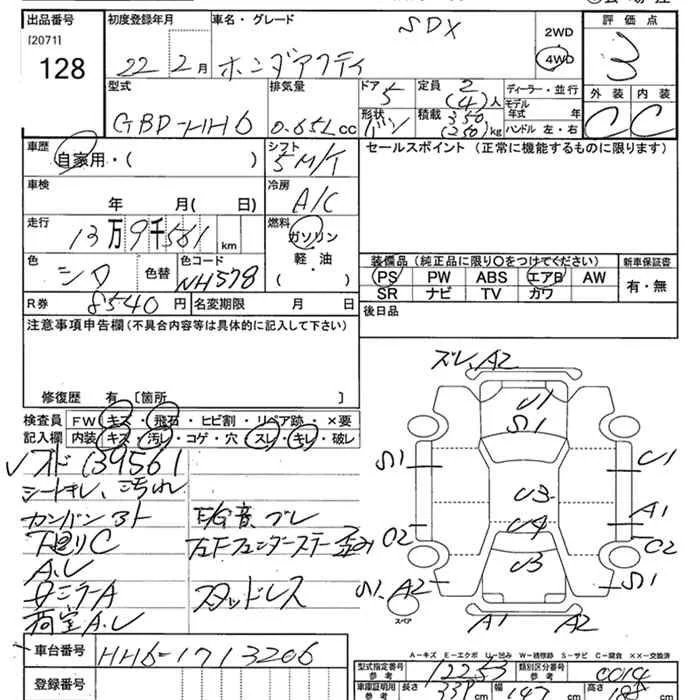 出品番号
[2071]
128
初度登録年月
22 2月
車名・グレード
ホンダアクティ SDX
2WD
4WD
評価点
3
型式
GBD-HH6
排気量
0.65L cc
ドア
5
形状
バン
定員
2
(4)人
積載 350
(250)kg
ディーラー・並行
モデル
年式 年
ハンドル 左・右
外装 内装
C C
車歴
自家用・( )
シフト
5M/T
セールスポイント (正常に機能するものに限ります)
車検
年 月( 日)
冷房
A/C
走行
13万9千561km
燃料
ガソリン
軽油
( )
色
シロ
色替
色コード
NH578
装備品(純正品に限り○をつけてください)
PS PW ABS エアB AW
SR ナビ TV カワ
新車保証書
有・無
R券 8540円
名変期限 月 日
後日品
注意事項申告欄(不具合内容等は具体的に記入して下さい)
修復歴 有 [箇所 ]
検査員
記入欄
FW キズ・飛石・ヒビ割・リペア跡・×要
内装 キズ・汚レ・コゲ・穴・スレ・キレ・破レ
139561
シートキレ、汚れ
カンバンアト
下廻りC
A、U
E/G音、ブレ
左Fフェンダーステー歪み
スタッドレス
荷室A、U
ズレ、A2
U1
S1
S1
U1
U3
U4
A1
C2
C2
U3
S1、A2
S1
スペア
A1
A2
A-キズ E-エクボ U-凹み W-補修跡 S-サビ C-腐食 ××-交換済
車台番号
HH6-1713206
登録番号
型式指定番号
参考
12253
類別区分番号
参考
0014
車庫証明用
参考
長さ 339 cm
幅 147 cm
高さ cm